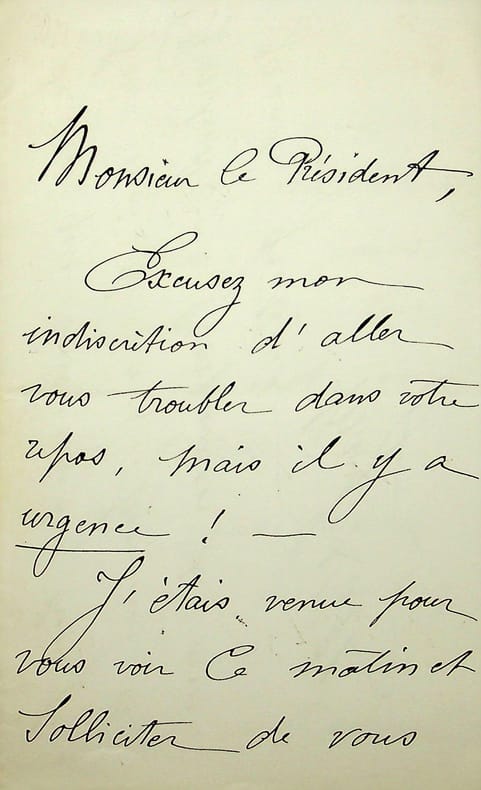 Monsieur le Président,
Excusez mon
indiscrétion d'aller
vous troubler dans votre
repos, mais il y a
urgence ! —
J'étais venue pour
vous voir ce matin et
Solliciter de vous